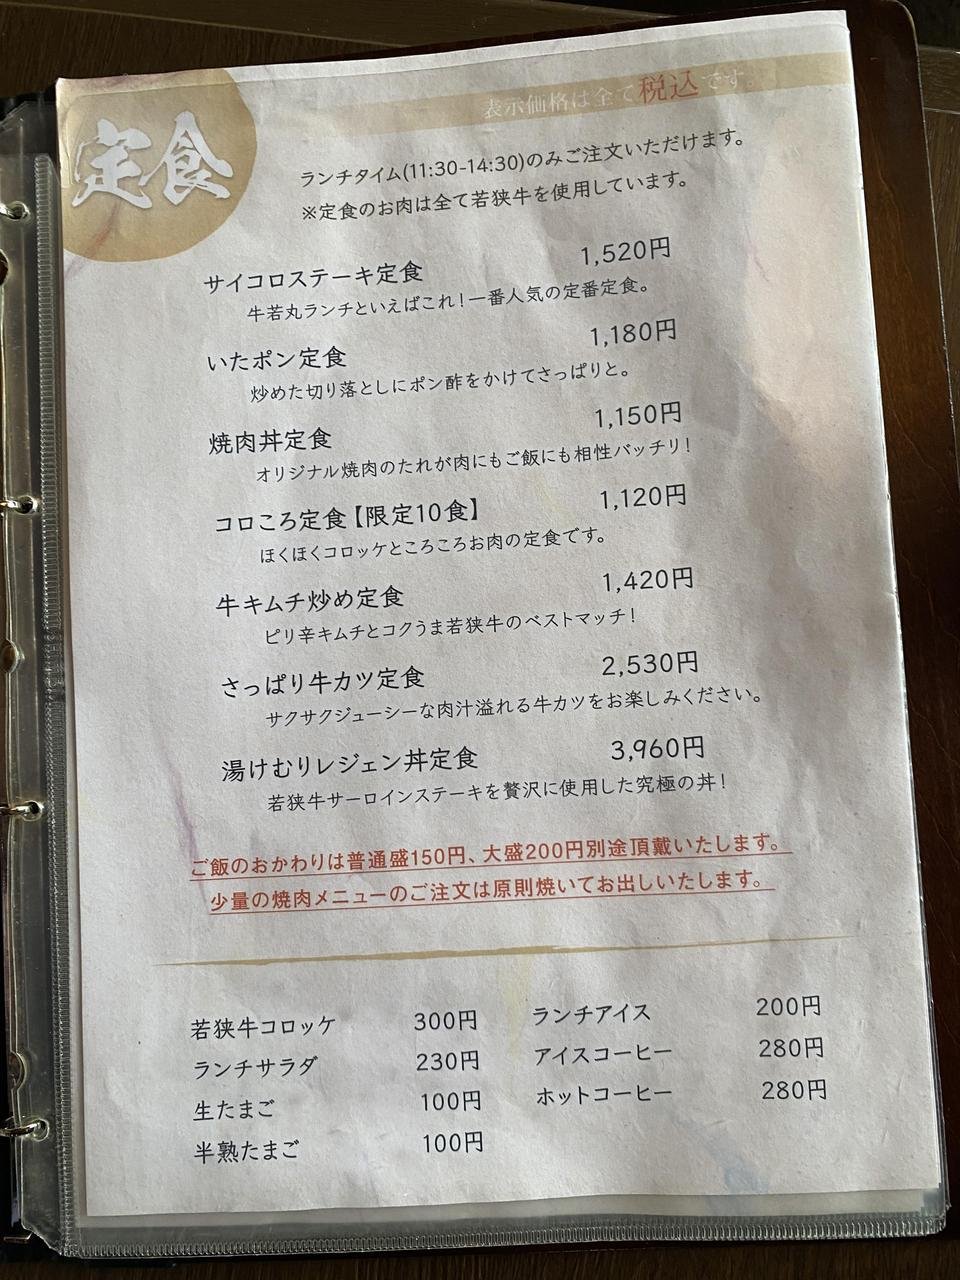 定食
表示価格は全て税込です。
ランチタイム(11:30-14:30)のみご注文いただけます。
※定食のお肉は全て若狭牛を使用しています。
サイコロステーキ定食 1,520円
牛若丸ランチといえばこれ！一番人気の定番定食。
いたポン定食 1,180円
炒めた切り落としにポン酢をかけてさっぱりと。
焼肉丼定食 1,150円
オリジナル焼肉のたれが肉にもご飯にも相性バッチリ！
コロころ定食【限定10食】 1,120円
ほくほくコロッケところころお肉の定食です。
牛キムチ炒め定食 1,420円
ピリ辛キムチとコクうま若狭牛のベストマッチ！
さっぱり牛カツ定食 2,530円
サクサクジューシーな肉汁溢れる牛カツをお楽しみください。
湯けむりレジェン丼定食 3,960円
若狭牛サーロインステーキを贅沢に使用した究極の丼！
ご飯のおかわりは普通盛150円、大盛200円別途頂戴いたします。
少量の焼肉メニューのご注文は原則焼いてお出しいたします。
若狭牛コロッケ 300円
ランチサラダ 230円
生たまご 100円
半熟たまご 100円
ランチアイス 200円
アイスコーヒー 280円
ホットコーヒー 280円